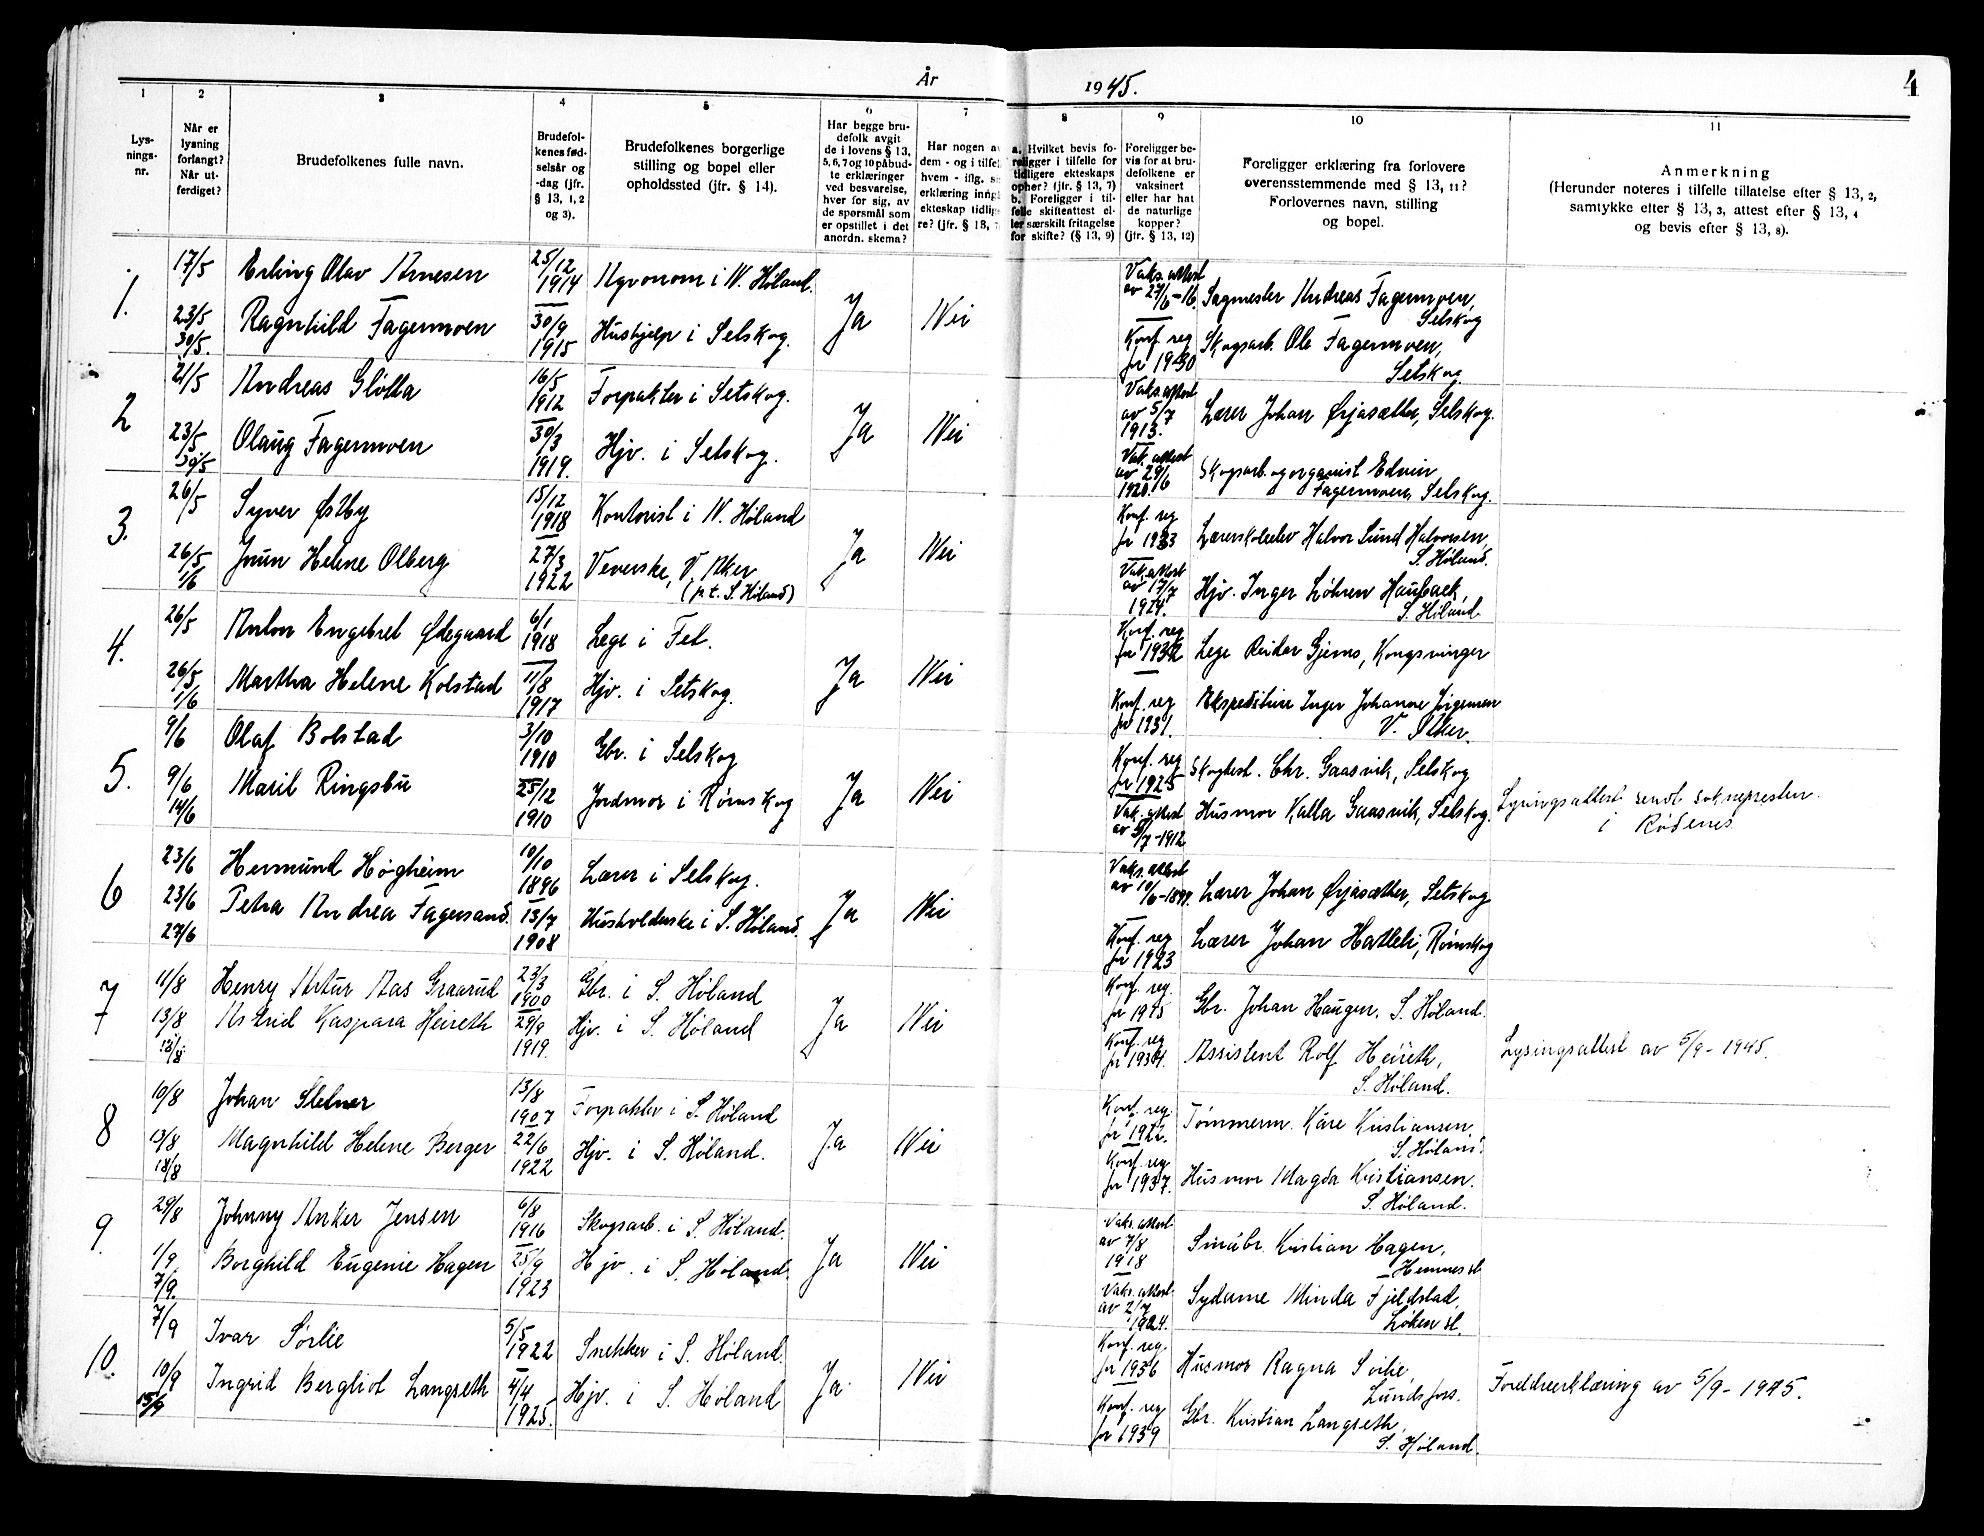 År 1945.
4
1
2
3
4
5
6
7
8
9
10
11
Lys-
nings-
nr.
Når er
lysning
forlangt?
Når ut-
ferdiget?
Brudefolkenes fulle navn.
Brudefol-
kenes fød-
selsår og
-dag (jfr.
§ 13, 1, 2
og 3).
Brudefolkenes borgerlige
stilling og bopel eller
opholdssted (jfr. § 14).
Har begge bru-
defolk avgit
de i lovens § 13,
5, 6, 7 og 10 påbud-
te erklæringer
ved besvarelse,
hver for sig, av
de spørsmål som
er opstillet i det
anordn. skema?
Har nogen av
dem - og i tilfel
hvem - iflg. s
erklæring inngå
ekteskap tidlig
re? (jfr. § 13, 7
a. Hvilket bevis fo-
religger i tilfelle for
tidligere ekteskaps
ophør? (jfr. § 13, 7)
b. Foreligger i til-
felle skifteattest el-
ler særskilt fritagelse
for skifte? (§ 13, 9)
Foreligger be-
vis for at bru-
defolkene er
vaksinert
eller har hat
de naturlige
kopper?
(jfr. § 13, 12)
Foreligger erklæring fra forlovere
overensstemmende med § 13, 11?
Forlovernes navn, stilling
og bopel.
Anmerkning
(Herunder noteres i tilfelle tillatelse efter § 13, 2,
samtykke efter § 13, 3, attest efter § 13, 4
og bevis efter § 13, 8).
1.
17/5
23/5
30/5.
Erling Olav Arnesen
Ragnhild Fagermoen
25/12
1914
30/9
1915
Agronom i N. Høland.
Hushjelp i Setskog.
Ja
Nei
Vaks.attest
av 27/6-16.
Konf. reg
for 1930
Sagmester Andreas Fagermoen,
Setskog
Skogsarb. Ole Fagermoen,
Setskog.
2
21/5
23/5
30/5
Andreas Gløtta
Olaug Fagermoen
16/5
1912
30/3
1919.
Forpakter i Setskog.
Hjv. i Setskog.
Ja
Nei
Vaks.attest
av 5/7
1913.
Vak.attest
av 29/6
1920.
Lærer Johan Ørjasæther, Setskog.
Skogsarb. og organist Edvin
Fagermoen, Setskog.
3.
26/5
26/5
1/6
Syver Østby
Jorun Helene Olberg
15/12
1918
27/3
1922
Kontorist i N. Høland
Veverske, V. Aker
(p.t. S. Høland)
Ja
Nei
Konf. reg
for 1933
Vak.attest
av 17/7
1924.
Lærerskoleelev Halvor Lund Halvorsen,
S. Høland.
Hjv. Inger Løhren Hauback,
S. Høland
4.
26/5
26/5
1/6
Anton Engebret Ødegaard
Martha Helene Kolstad
6/1
1918
11/8
1917
Lege i Fet.
Hjv. i Setskog.
Ja
Nei
Konf. reg
for 1932
Konf. reg
for 1931.
Lege Reidar Gjems, Kongsvinger
Ekspeditrise Inger Johanne Jørgensen
V. Aker.
5.
9/6
9/6
14/6
Olaf Bolstad
Marit Ringsbu
3/10
1910
25/12
1910
Gbr. i Setskog
Jordmor i Rømskog
Ja
Nei
Konf. reg
for 1925
Vak. attest
av 5/7-1912
Skogbest. Chr. Gaasvik, Setskog
Husmor Kalla Gaasvik, Setskog.
Lysningsattest sendt soknepresten
i Rødenes
6
23/6
23/6
27/6
Hermund Høgheim
Petra Andrea Fagersand.
10/10
1896
13/7
1908
Lærer i Setskog.
Husholderske i S. Høland.
Ja
Nei
Vaks.attest
av 10/6-1897.
Konf. reg
for 1923
Lærer Johan Ørjasæther, Setskog
Lærer Johan Hatleli, Rømskog
7
11/8
13/8
18/8
Henry Artur Aas Graarud
Astrid Kaspara Heireth
23/3
1900
29/9
1919.
Gbr. i S. Høland
Hjv. i S. Høland
Ja
Nei
Konf. reg.
for 1915
Konf. reg
for 1934.
Gbr. Johan Haugen, S. Høland.
Assistent Rolf Heireth,
S. Høland.
Lysingsattest av 5/9-1945.
8
10/8
13/8
18/8
Johan Stetner
Magnhild Helene Berger
13/8
1907
22/6
1922
Forpakter i S. Høland
Hjv. i S. Høland.
Ja
Nei
Konf. reg.
for 1922.
Konf. reg
for 1937.
Tømmerm. Kåre Kristiansen,
S. Høland.
Husmor Magda Kristiansen.
S. Høland.
9.
29/8
1/9.
7/9.
Johnny Anker Jensen
Borghild Eugenie Hagen
6/8
1916
25/9
1923
Skogsarb. i S. Høland.
Hjv. i S. Høland.
Ja
Nei
Vaks.attest
av 7/8
1918
Vaks.attest
av 2/7
1924.
Småbr. Kristian Hagen,
Hemnes st.
Sydame Minda Fjeldstad,
Løken st.
10.
7/9
10/9
15/9
Ivar Sørlie
Ingrid Bergliot Langseth
5/5
1922
4/4
1925.
Snekker i S. Høland.
Hjv. i S. Høland
Ja
Nei
Konf. reg.
for 1936
Konf. reg
for 1939
Husmor Ragna Sørlie,
Lundsfoss.
Gbr. Kristian Langseth,
S. Høland.
Foreldreerklæring av 5/9-1945.